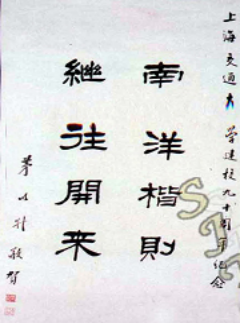 上海交通大学建校九十周年纪念
南洋楷则
继往開来
茅以升敬贺